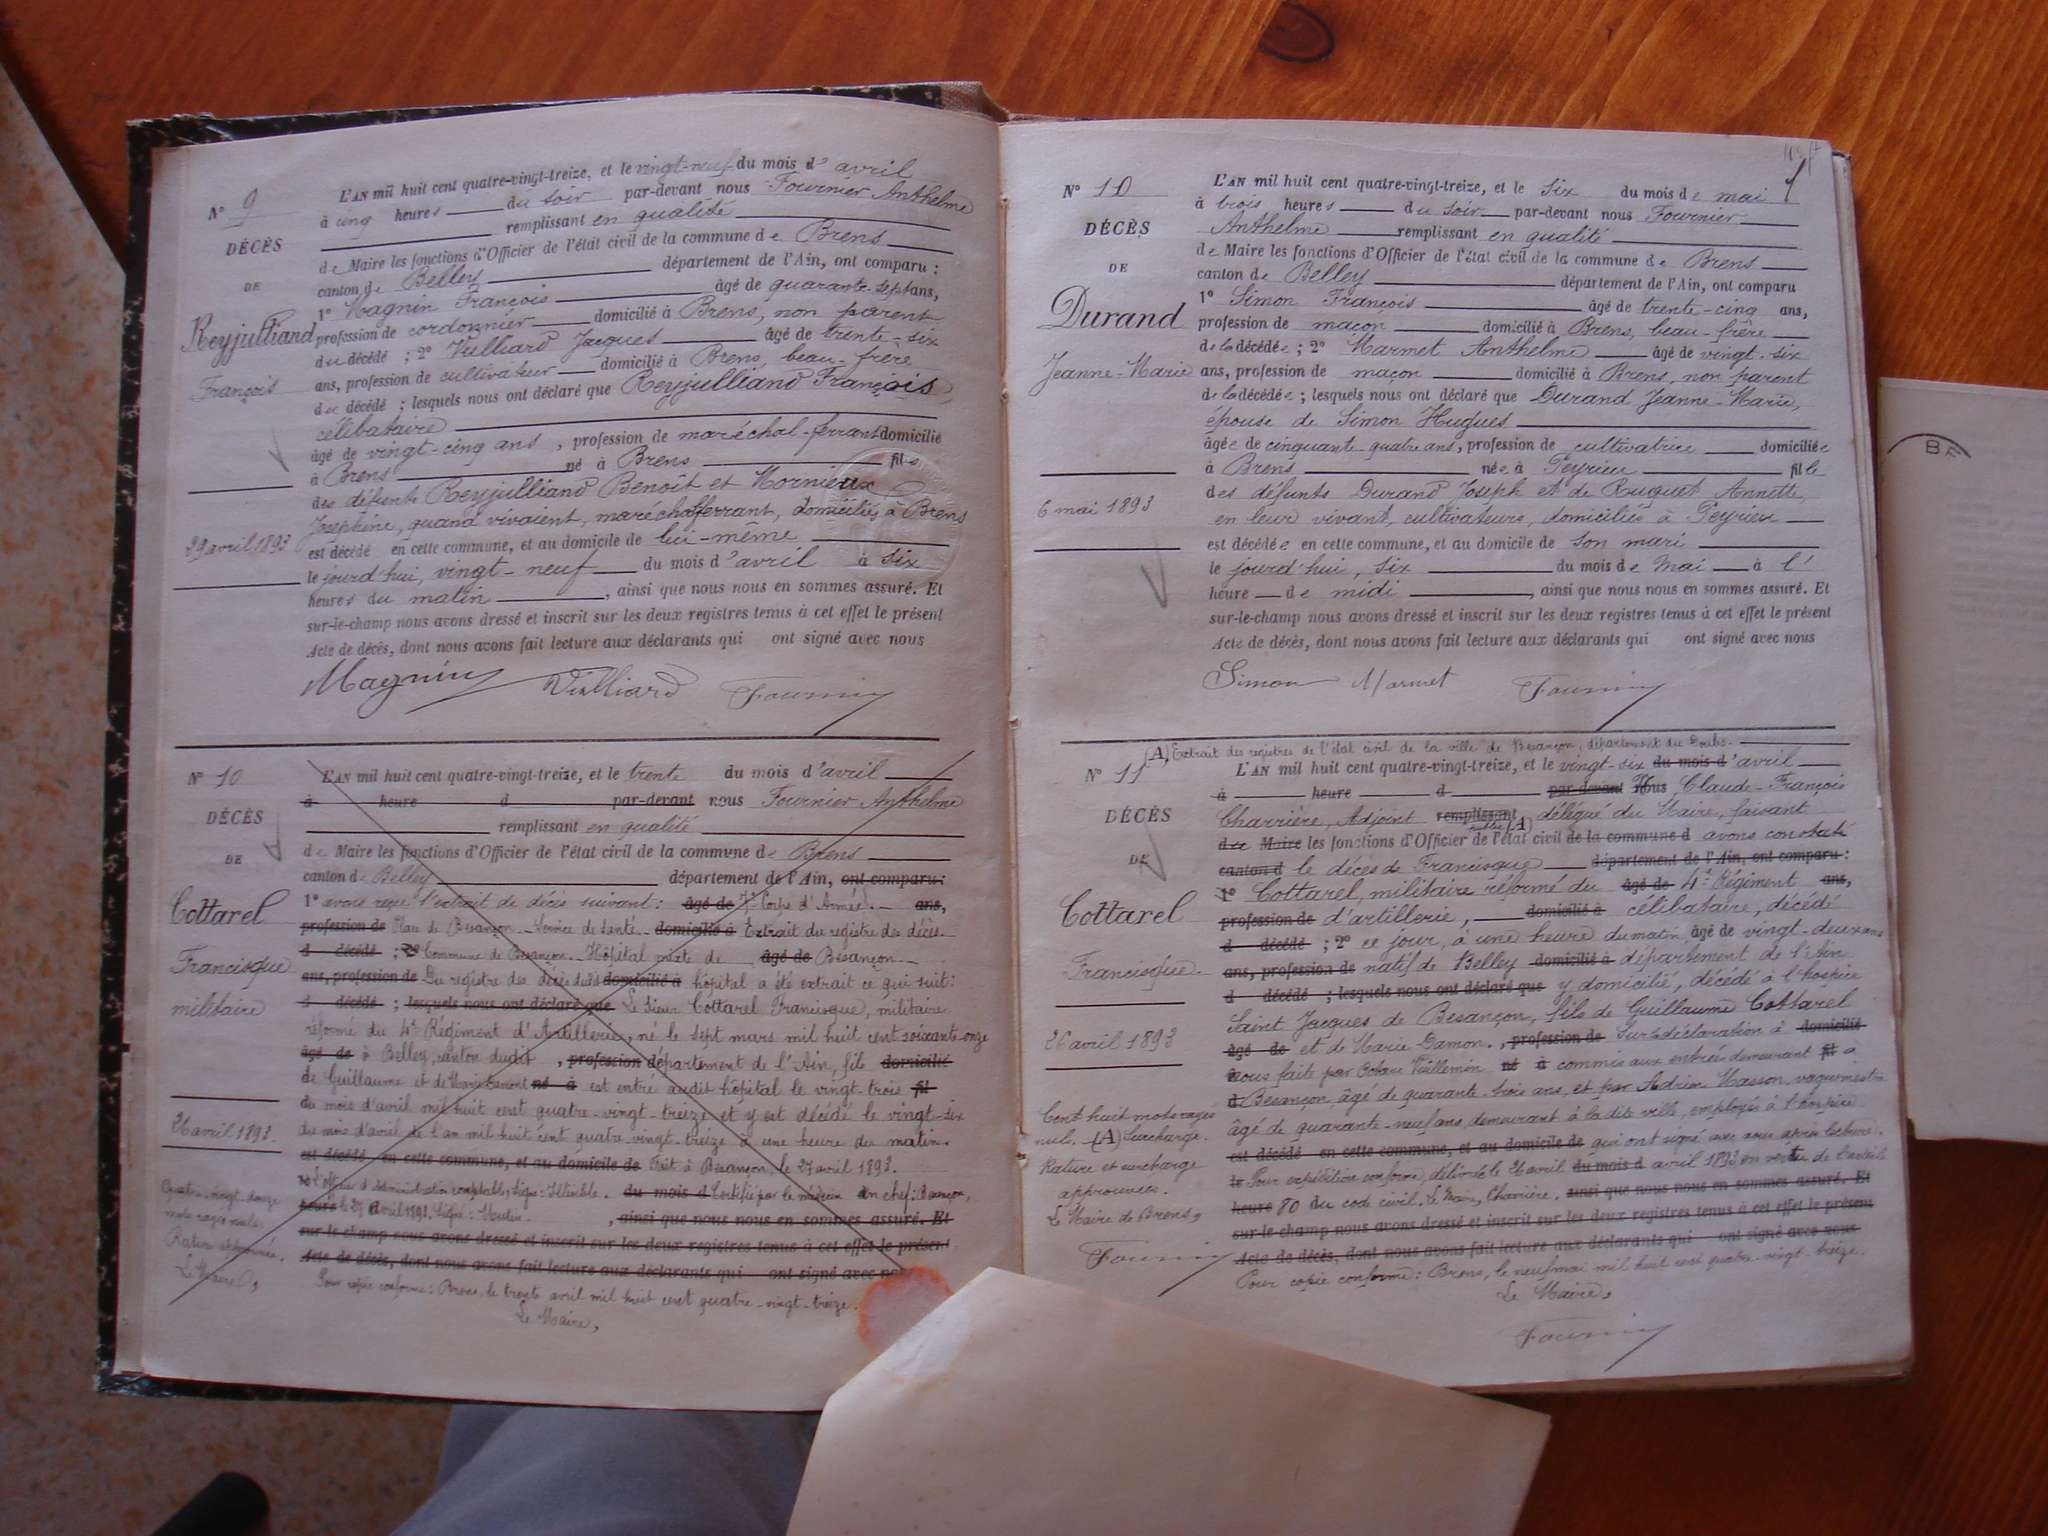 N° 9
DÉCÈS
DE
Reyjulliand
François
29 avril 1893
L'AN mil huit cent quatre-vingt-treize, et le vingt-neuf du mois d'avril
à cinq heures du soir par-devant nous Fournier Anthelme
remplissant en qualité
de Maire les fonctions d'Officier de l'état civil de la commune de Brens
canton de Belley département de l'Ain, ont comparu :
1° Magnin François âgé de quarante-sept ans,
profession de cordonnier domicilié à Brens, non parent
du décédé ; 2° Vulliard Jacques âgé de trente-six
ans, profession de cultivateur domicilié à Brens, beau-frère
du décédé ; lesquels nous ont déclaré que Reyjulliand François,
célibataire
âgé de vingt-cinq ans, profession de maréchal-ferrant domicilié
à Brens né à Brens fils
des défunts Reyjulliand Benoît et Mornieux
Joséphine, quand vivaient, maréchal ferrant, domiciliés à Brens
est décédé en cette commune, et au domicile de lui-même
le jourd'hui, vingt-neuf du mois d'avril à six
heures du matin, ainsi que nous nous en sommes assuré. Et
sur-le-champ nous avons dressé et inscrit sur les deux registres tenus à cet effet le présent
Acte de décès, dont nous avons fait lecture aux déclarants qui ont signé avec nous
Magnin Vulliard Fournier
N° 10
DÉCÈS
DE
Cottarel
Francisque
militaire
26 avril 1893.
Quatre-vingt-douze
mots rayés nuls.
Rature approuvée.
Le Maire,
L'AN mil huit cent quatre-vingt-treize, et le trente du mois d'avril
à heure d par-devant nous Fournier Anthelme
remplissant en qualité
de Maire les fonctions d'Officier de l'état civil de la commune de Brens
canton de Belley département de l'Ain, ont comparu :
1° avons reçu l'extrait de décès suivant : âgé de 7e Corps d'Armée. ans,
profession de Place de Besançon. Service de Santé. domicilié à Extrait du registre des décès.
d décédé ; 2° Commune de Besançon. Hôpital mixte de âgé de Besançon.
ans, profession de Du registre des décès dudit domicilié à hôpital a été extrait ce qui suit :
d décédé ; lesquels nous ont déclaré que Le Sieur Cottarel Francisque, militaire
réformé du 4e Régiment d'Artillerie, né le sept mars mil huit cent soixante-onze
âgé de à Belley, canton dudit, profession département de l'Ain, fils domicilié
de Guillaume et de Marie Damont né à est entré audit hôpital le vingt-trois fil
du mois d'avril mil huit cent quatre-vingt-treize et y est décédé le vingt-six
du mois d'avril de l'an mil huit cent quatre-vingt-treize à une heure du matin.
est décédé en cette commune, et au domicile de Fait à Besançon, le 27 avril 1893.
le L'officier d'administration comptable, Signé : du mois d Certifié par le médecin en chef : Besançon,
heure le 27 avril 1893. Signé : , ainsi que nous nous en sommes assuré. Et
sur le champ nous avons dressé et inscrit sur les deux registres tenus à cet effet le présent
Acte de décès, dont nous avons fait lecture aux déclarants qui ont signé avec
Pour copie conforme : Brens, le trente avril mil huit cent quatre-vingt-treize.
Le Maire,
N° 10
DÉCÈS
DE
Durand
Jeanne-Marie
6 mai 1893
L'AN mil huit cent quatre-vingt-treize, et le six du mois de mai
à trois heures du soir par-devant nous Fournier
Anthelme remplissant en qualité
de Maire les fonctions d'Officier de l'état civil de la commune de Brens
canton de Belley département de l'Ain, ont comparu
1° Simon François âgé de trente-cinq ans,
profession de maçon domicilié à Brens, beau-frère
de la décédée ; 2° Marmet Anthelme âgé de vingt-six
ans, profession de maçon domicilié à Brens, non parent
de la décédée ; lesquels nous ont déclaré que Durand Jeanne-Marie,
épouse de Simon Hugues
âgée de cinquante quatre ans, profession de cultivatrice domiciliée
à Brens née à Peyrieu fille
des défunts Durand Joseph et de Ruguet Annette,
en leur vivant, cultivateurs, domiciliés à Peyrieu
est décédée en cette commune, et au domicile de son mari
le jourd'hui, six du mois de Mai à l'
heure de midi, ainsi que nous nous en sommes assuré. Et
sur-le-champ nous avons dressé et inscrit sur les deux registres tenus à cet effet le présent
Acte de décès, dont nous avons fait lecture aux déclarants qui ont signé avec nous
Simon Marmet Fournier
(A) Extrait des registres de l'état civil de la ville de Besançon, département du Doubs.
N° 11
DÉCÈS
DE
Cottarel
Francisque.
26 avril 1893
Cent huit mots rayés
nuls. (A) Surcharge.
Rature et surcharge
approuvées.
Le Maire de Brens,
Fournier
L'AN mil huit cent quatre-vingt-treize, et le vingt-six du mois d'avril
à heure d par-devant Nous Claude-François
Charrière, Adjoint remplissant délégué du Maire, faisant
de Maire les fonctions d'Officier de l'état civil (A) de la commune d avons constaté
canton d le décès de Francisque département de l'Ain, ont comparu :
1° Cottarel, militaire réformé du âgé de 4e Régiment ans,
profession de d'artillerie, domicilié à célibataire, décédé
d décédé ; 2° ce jour, à une heure du matin, âgé de vingt-deux ans
ans, profession de natif de Belley domicilié à département de l'Ain
d décédé ; lesquels nous ont déclaré que y domicilié, décédé à l'hospice
Saint Jacques de Besançon, fils de Guillaume Cottarel
âgé de et de Marie Damon., profession de Sur la déclaration à domicilié
à nous faite par Octave Vuillemin né à commis aux entrées demeurant fil à
d Besançon âgé de quarante-trois ans, et par Adrien Masson, vaguemestre
âgé de quarante-neuf ans, demeurant à la dite ville, employés à l'hospice
est décédé en cette commune, et au domicile de qui ont signé avec nous après lecture.
le Pour expédition conforme, délivrée le avril du mois d avril 1893 en vertu de l'article
heure 80 du code civil. Le Maire, Charrière. ainsi que nous nous en sommes assuré. Et
sur-le champ nous avons dressé et inscrit sur les deux registres tenus à cet effet le présent
Acte de décès, dont nous avons fait lecture aux déclarants qui ont signé avec nous
Pour copie conforme : Brens, le neuf mai mil huit cent quatre-vingt-treize.
Le Maire,
Fournier
BF